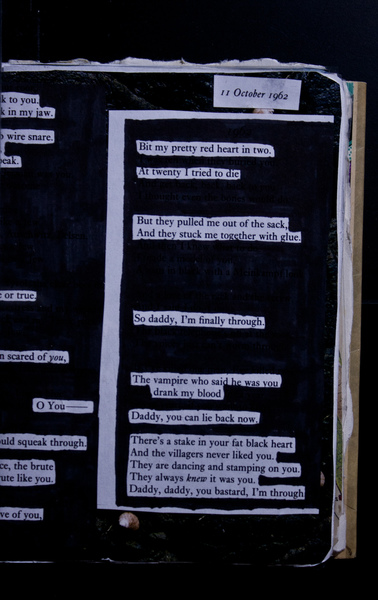 k to you.
k in my jaw.
wire snare.
or true.
scared of you,
O You——
uld squeak through.
the brute
ute like you.
ve of you,
11 October 1962
Bit my pretty red heart in two.
At twenty I tried to die
But they pulled me out of the sack,
And they stuck me together with glue.
So daddy, I'm finally through.
The vampire who said he was you
drank my blood
Daddy, you can lie back now.
There's a stake in your fat black heart
And the villagers never liked you.
They are dancing and stamping on you.
They always knew it was you.
Daddy, daddy, you bastard, I'm through